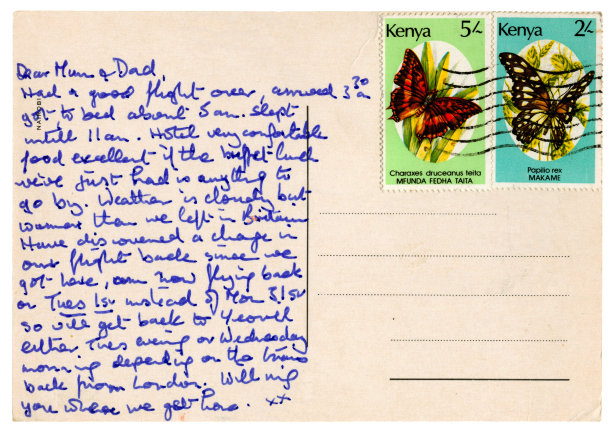 Dear Mum & Dad,
Had a good flight over, arrived 3 30 am
got to bed about 5am. slept
untill 11am. Hotel very comfortable
food excellent if the buffet lunch
we've just had is anything to
go by. Weather is cloudy but
warmer than we left in Britain
Have discovered a change in
our flight back since we
got here, am now flying back
on Tues 1st instead of Mon 31st
so will get back to Yeovil
either Tues evening or Wednesday
morning depending on the trains
back from London. Will ring
you when we get home. xx
NAIROBI
Kenya 5/-
Charaxes druceanus teita
MFUNDA FEDHA TAITA
Kenya 2/-
Papilio rex
MAKAME